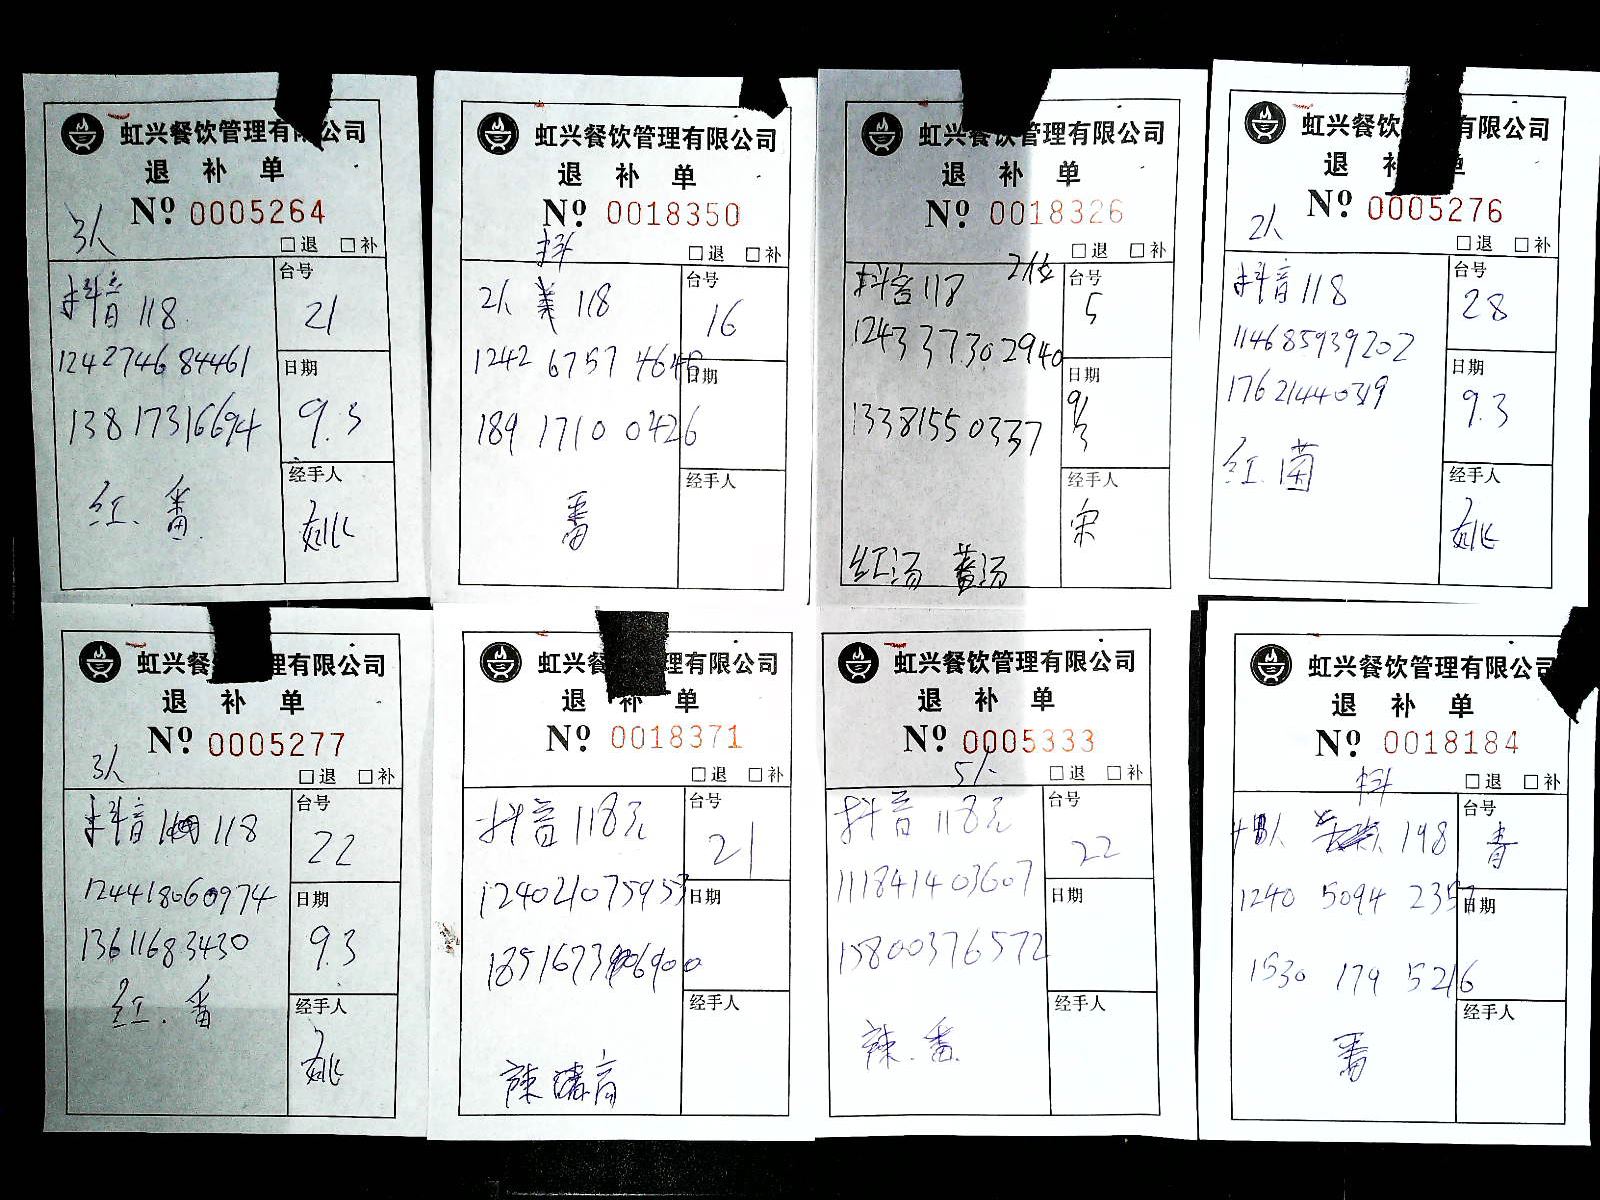 虹兴餐饮管理有限公司
退 补 单
Nº 0005264
3人
□退 □补
抖音 118
124274684461
13817316694
红. 番
台号
21
日期
9.3
经手人
姚
虹兴餐饮管理有限公司
退 补 单
Nº 0018350
□退 □补
抖
2人 118
1242 6757 4648
189 1710 0426
番
台号
16
日期
经手人
虹兴餐饮管理有限公司
退 补 单
Nº 0018326
□退 □补
2位
抖音 118
1243 3773 02940
13381550337
红汤 番汤
台号
5
日期
9/3
经手人
宋
虹兴餐饮有限公司
退 补 单
Nº 0005276
2人
□退 □补
抖音 118
114685939202
17621440319
红. 菌
台号
28
日期
9.3
经手人
姚
虹兴餐管理有限公司
退 补 单
Nº 0005277
3人
□退 □补
抖音 118
124418060974
13611683430
红. 番
台号
22
日期
9.3
经手人
姚
虹兴餐管理有限公司
退 补 单
Nº 0018371
□退 □补
抖音 118元
124021075953
辣
台号
21
日期
经手人
虹兴餐饮管理有限公司
退 补 单
Nº 0005333
5人
□退 □补
抖音 118元
111841403607
15800376572
辣. 番.
台号
22
日期
经手人
虹兴餐饮管理有限公司
退 补 单
Nº 0018184
□退 □补
抖
198
1240 5094 2357
1530 179 5216
番
台号
青
日期
经手人